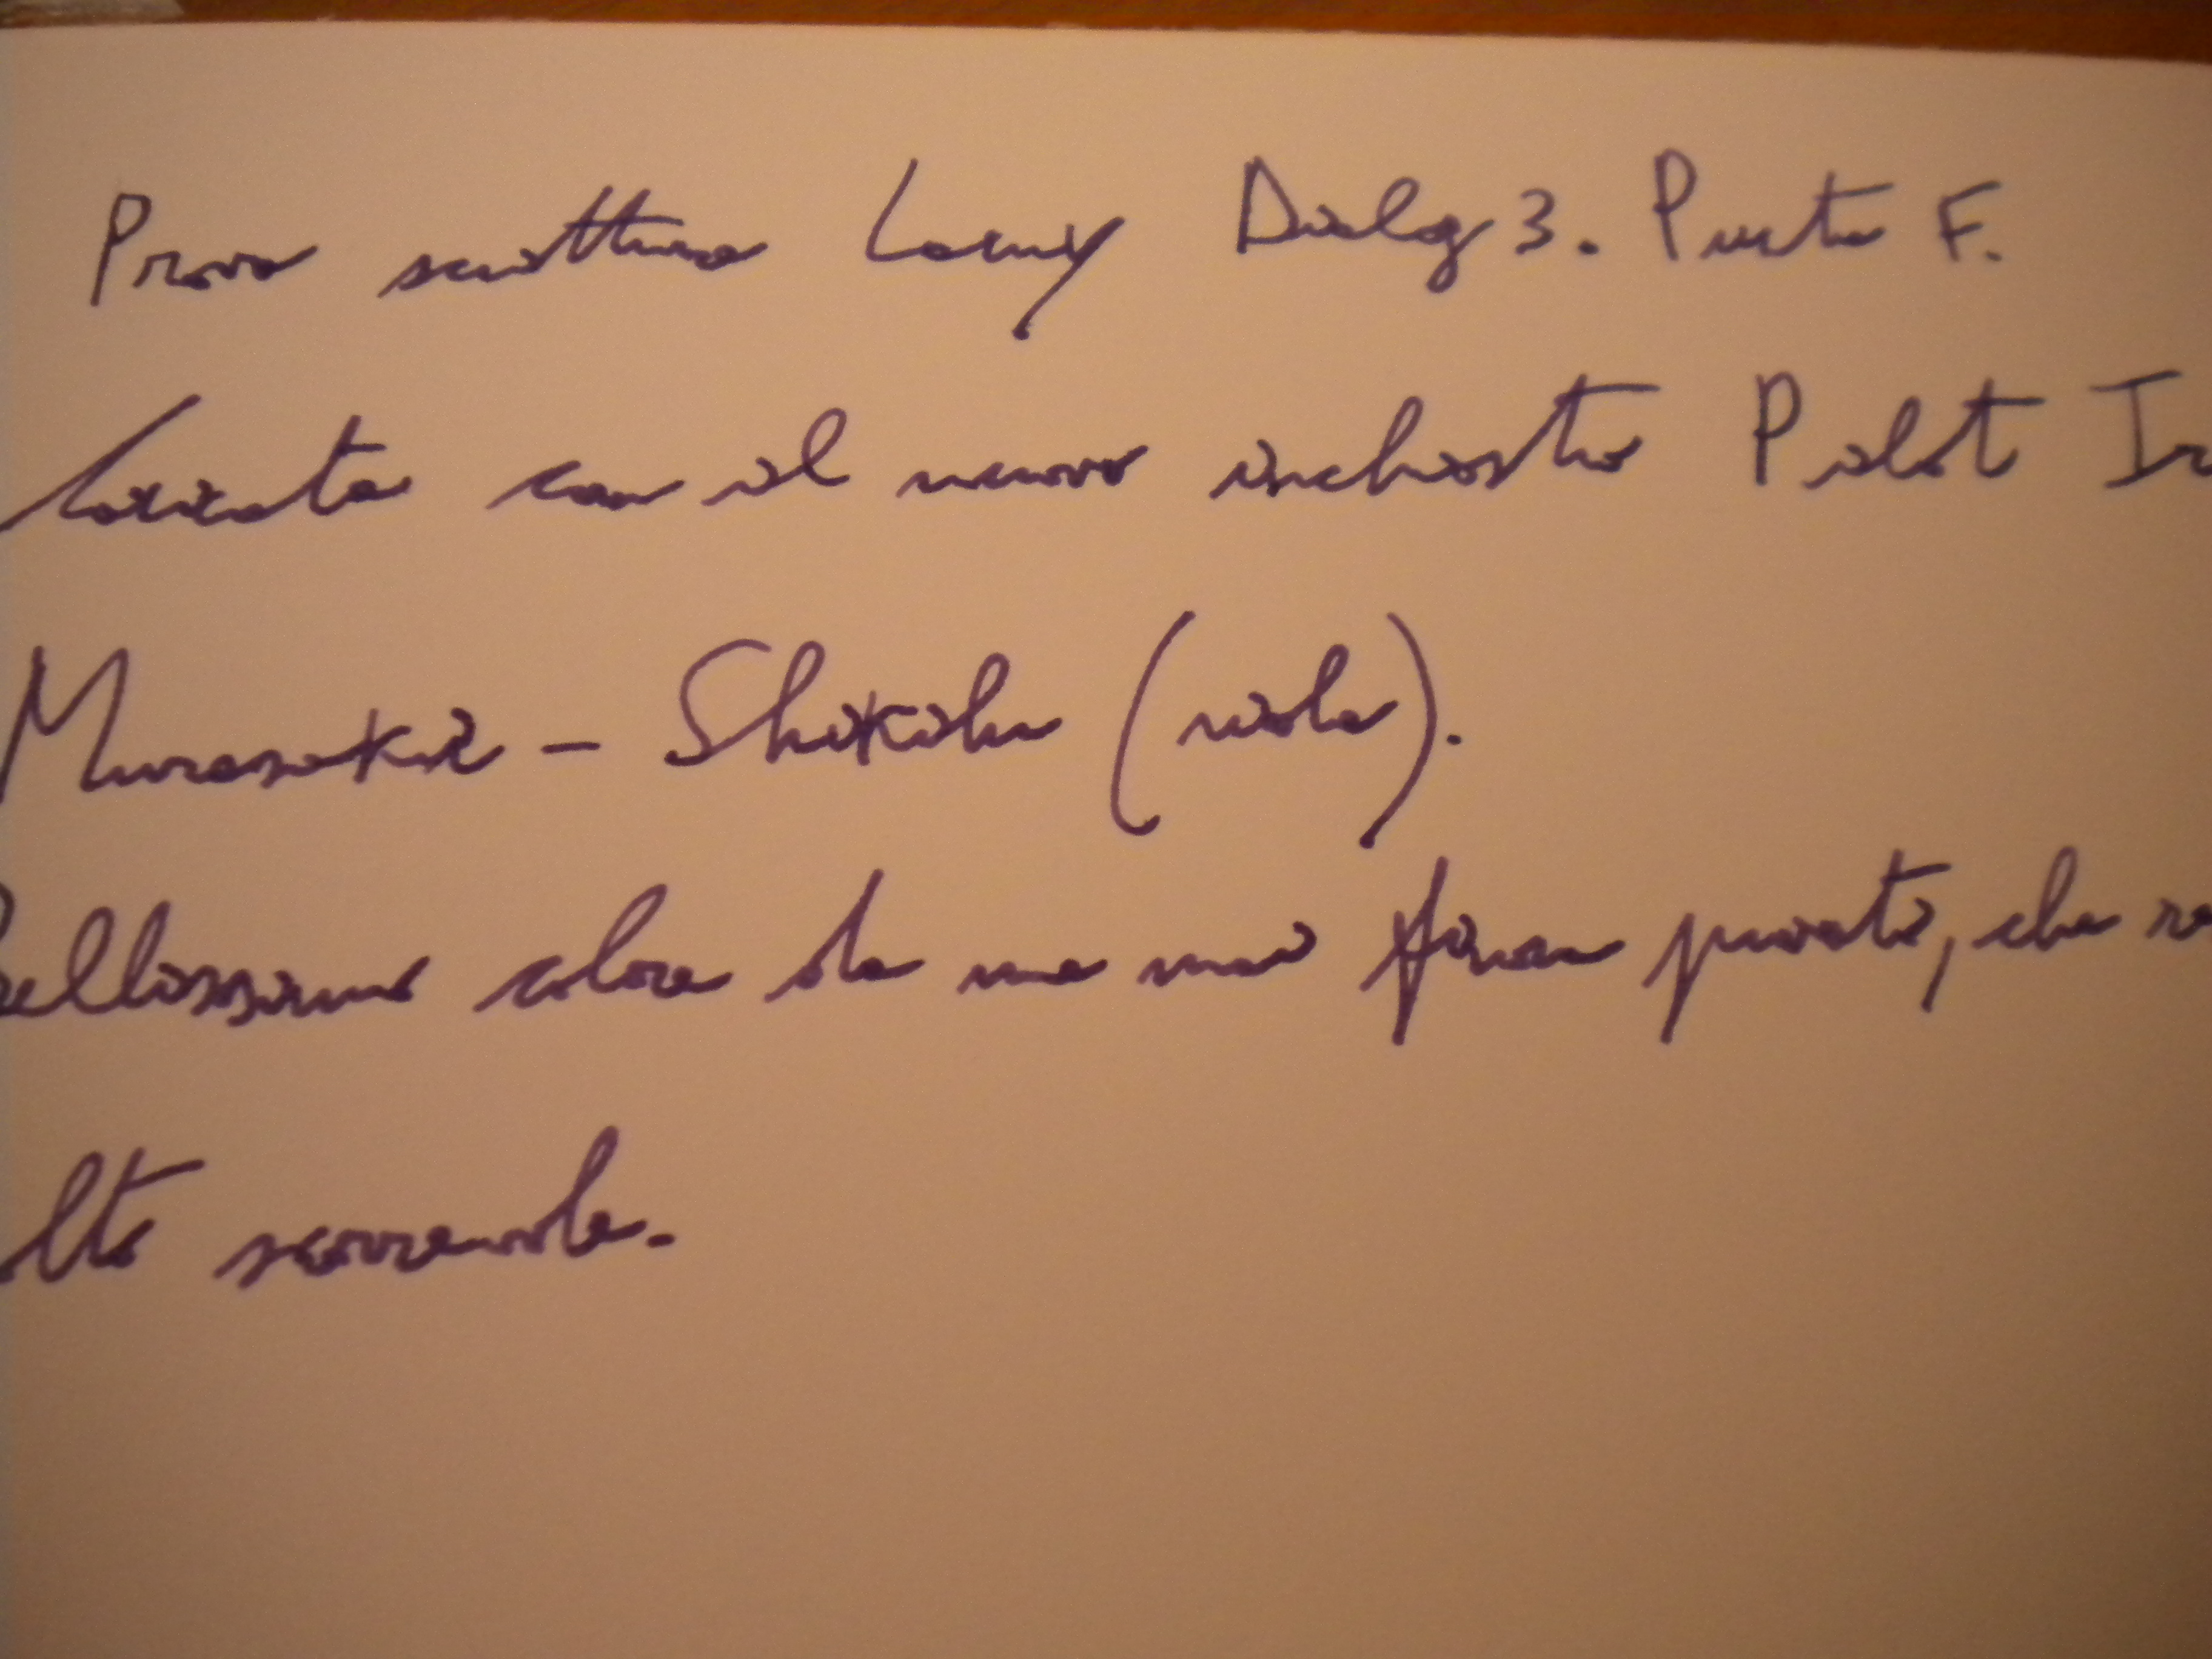 Prova scrittura Lamy Dialog 3. Punta F.
Caricata con il nuovo inchiostro Pilot Ir
Murasaki - Shikibu (viola).
Bellissimo colore da me mai finora provato, che re
lta scorrevole.